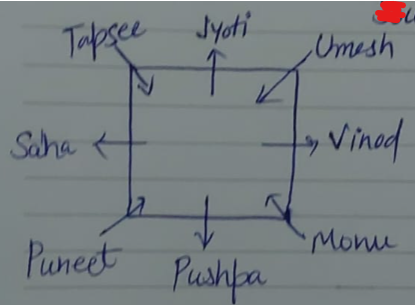 Tapsee Jyoti Umesh
Saha Vinod
Puneet Pushpa Monu